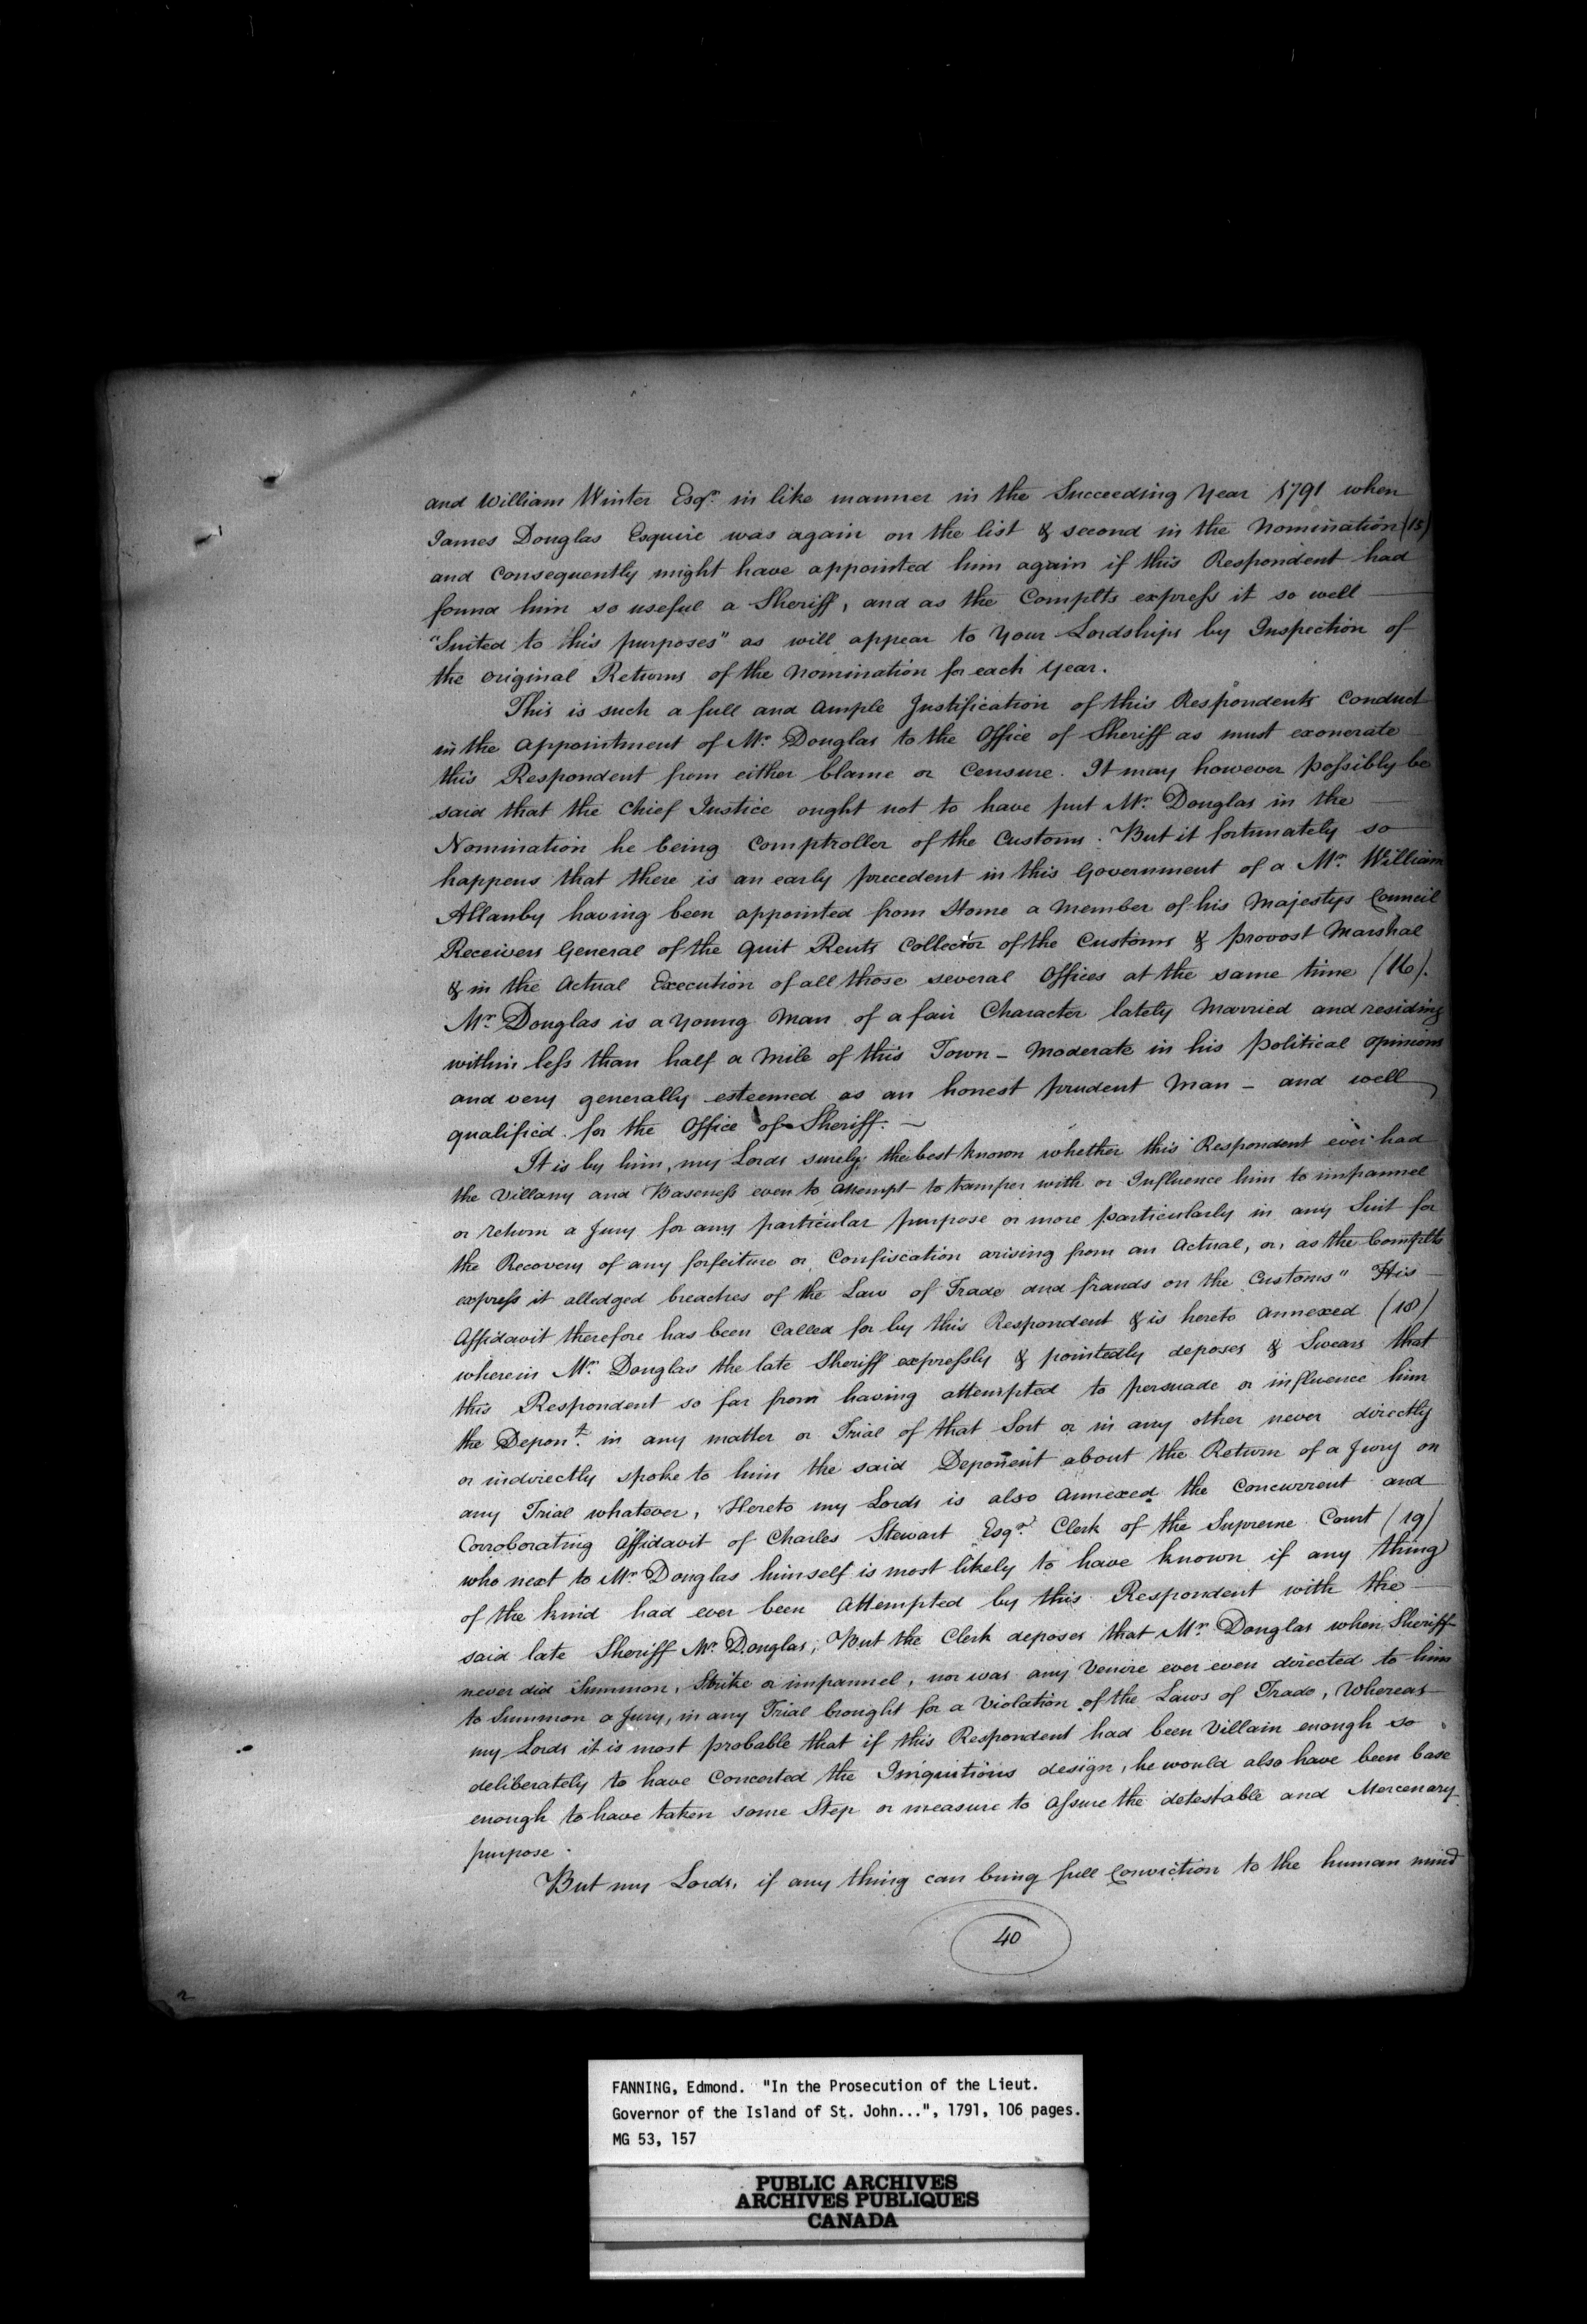 and William Winter Esqr. in like manner in the Succeeding Year 1791 when
James Douglas Esquire was again on the list & second in the Nomination (15)
and Consequently might have appointed him again if this Respondent had
found him so useful a Sheriff, and as the Complts express it so well —
"Suited to his purposes" as will appear to Your Lordships by Inspection of
the Original Returns of the Nomination for each Year.
This is such a full and Ample Justification of this Respondents Conduct
in the Appointment of Mr. Douglas to the Office of Sheriff as must exonerate
this Respondent from either blame or Censure. It may however possibly be
said that the Chief Justice ought not to have put Mr. Douglas in the —
Nomination he being Comptroller of the Customs. But it fortunately so
happens that there is an early precedent in this Government of a Mr. William
Allanby having been appointed from Home a Member of his Majestys Council
Receivers General of the Quit Rents Collector of the Customs & Provost Marshal
& in the Actual Execution of all those several Offices at the same time (16).
Mr. Douglas is a Young Man of a fair Character lately Married and residing
within less than half a Mile of this Town – Moderate in his Political Opinions
and very generally esteemed as an honest prudent Man – and well
qualified for the Office of Sheriff. –
It is by him, my Lords surely the best known whether this Respondent ever had
the Villany and Baseness even to Attempt to tamper with or Influence him to impannel
or return a Jury for any particular purpose or more particularly in any Suit for
the Recovery of any forfeiture or Confiscation arising from an Actual, or, as the Complts
express it alledged breaches of the Law of Trade and frauds on the Customs" His —
Affidavit therefore has been Called for by this Respondent & is hereto Annexed (18)
wherein Mr. Douglas the late Sheriff expressly & pointedly deposes & Swears that
this Respondent so far from having attempted to persuade or influence him
the Depont. in any matter or Trial of that Sort or in any other never directly
or indirectly spoke to him the said Deponent about the Return of a Jury on
any Trial whatever, Hereto my Lords is also Annexed the Concurrent and
Corroborating Affidavit of Charles Stewart Esqr. Clerk of the Supreme Court (19)
who next to Mr. Douglas himself is most likely to have known if any thing
of the kind had ever been Attempted by this Respondent with the —
said late Sheriff Mr. Douglas; But the Clerk deposes that Mr. Douglas when Sheriff
never did Summon, Strike or impannel, nor was any Venire ever even directed to him
to Summon a Jury, in any Trial brought for a Violation of the Laws of Trade, Whereas
my Lords it is most probable that if this Respondent had been Villain enough so
deliberately to have Concerted the Iniquitious design, he would also have been base
enough to have taken some Step or measure to Assure the detestable and Mercenary
purpose.
But my Lords, if any thing can bring full Conviction to the human mind
40
FANNING, Edmond. "In the Prosecution of the Lieut.
Governor of the Island of St. John...", 1791, 106 pages.
MG 53, 157
PUBLIC ARCHIVES
ARCHIVES PUBLIQUES
CANADA